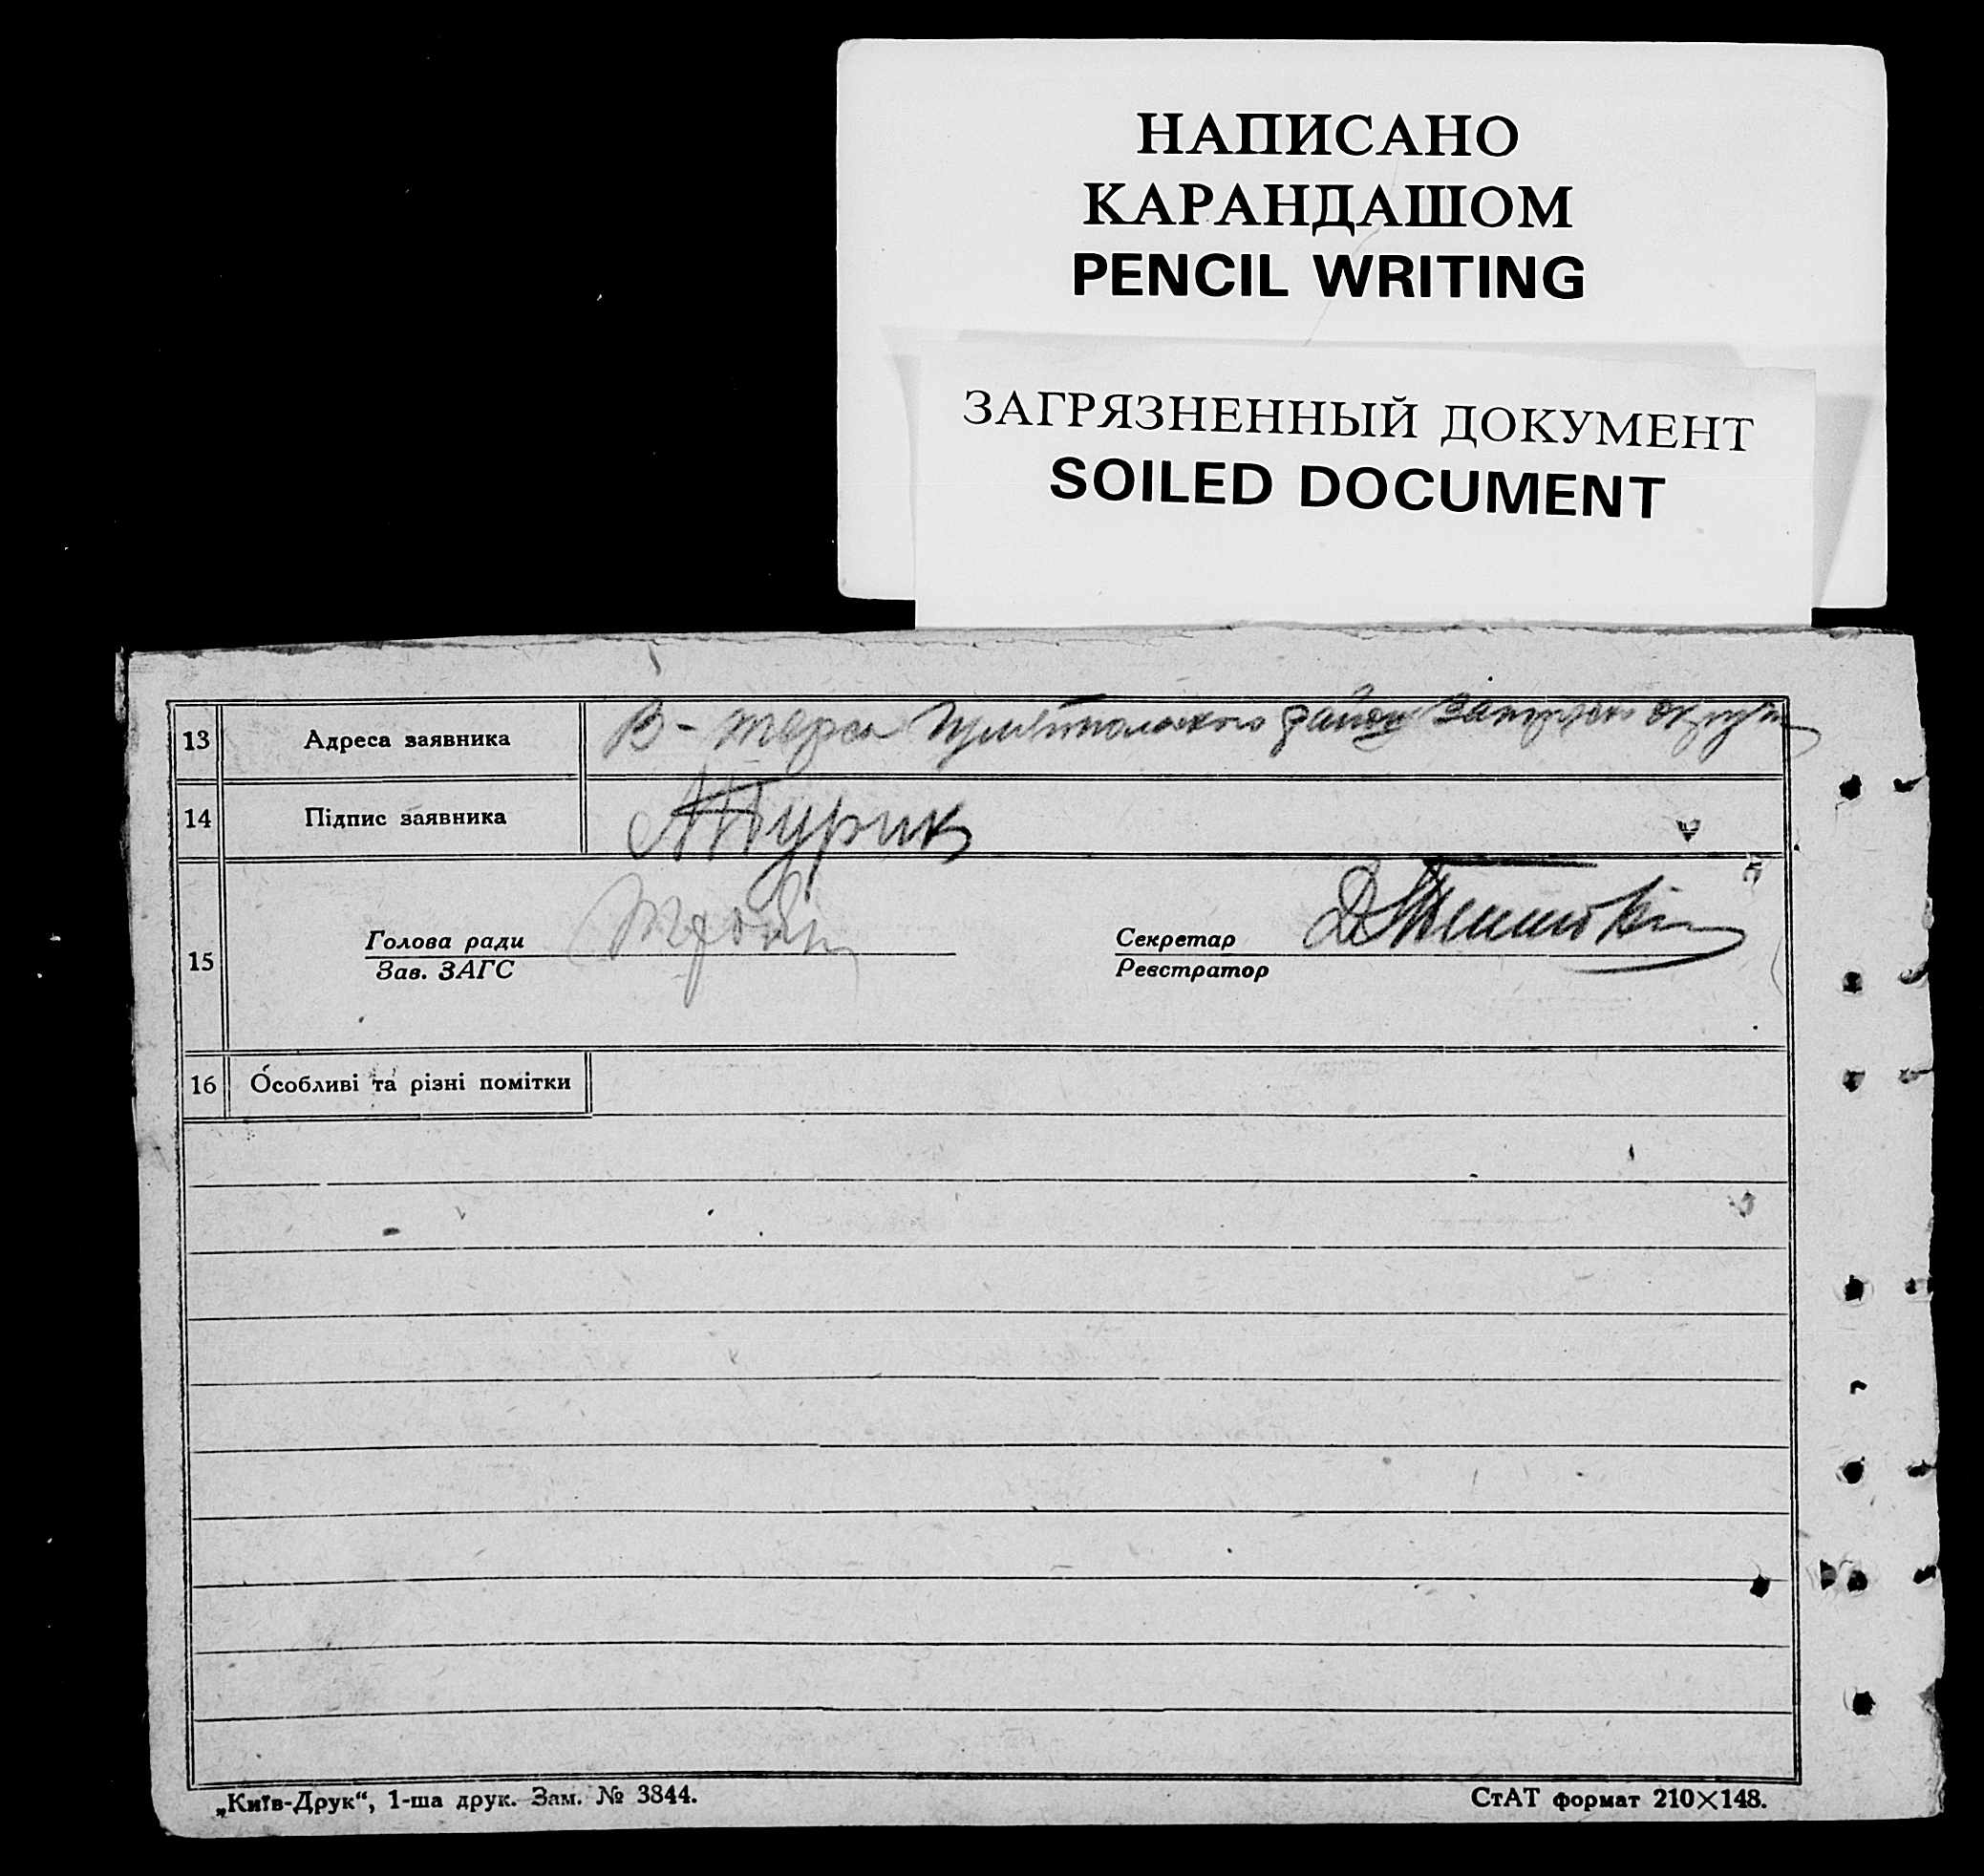 НАПИСАНО
КАРАНДАШОМ
PENCIL WRITING
ЗАГРЯЗНЕННЫЙ ДОКУМЕНТ
SOILED DOCUMENT
13 Адреса заявника В-Терса район
14 Підпис заявника Турик
15 Голова ради Секретар
Зав. ЗАГС Реєстратор
16 Особливі та різні помітки
„Київ-Друк“, 1-ша друк. Зам. № 3844. СтАТ формат 210×148.